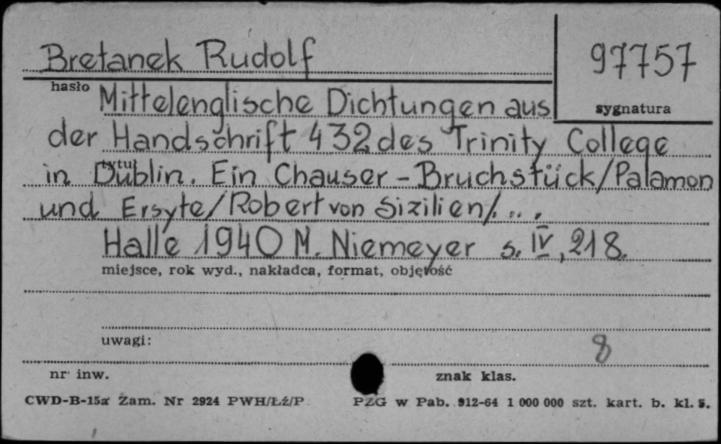 Bretanek Rudolf
97757
hasło
Mittelenglische Dichtungen aus
sygnatura
der Handschrift 432 des Trinity College
tytuł
in Dublin. Ein Chauser-Bruchstück/Palamon
und Ersyte/Robert von Sizilien/...
Halle 1940 M. Niemeyer s. IV, 218.
miejsce, rok wyd., nakładca, format, objętość
uwagi:
8
nr inw.
znak klas.
CWD-B-15a Zam. Nr 2924 PWH/Łź/P
PZG w Pab. 912-64 1 000 000 szt. kart. b. kl. 5.